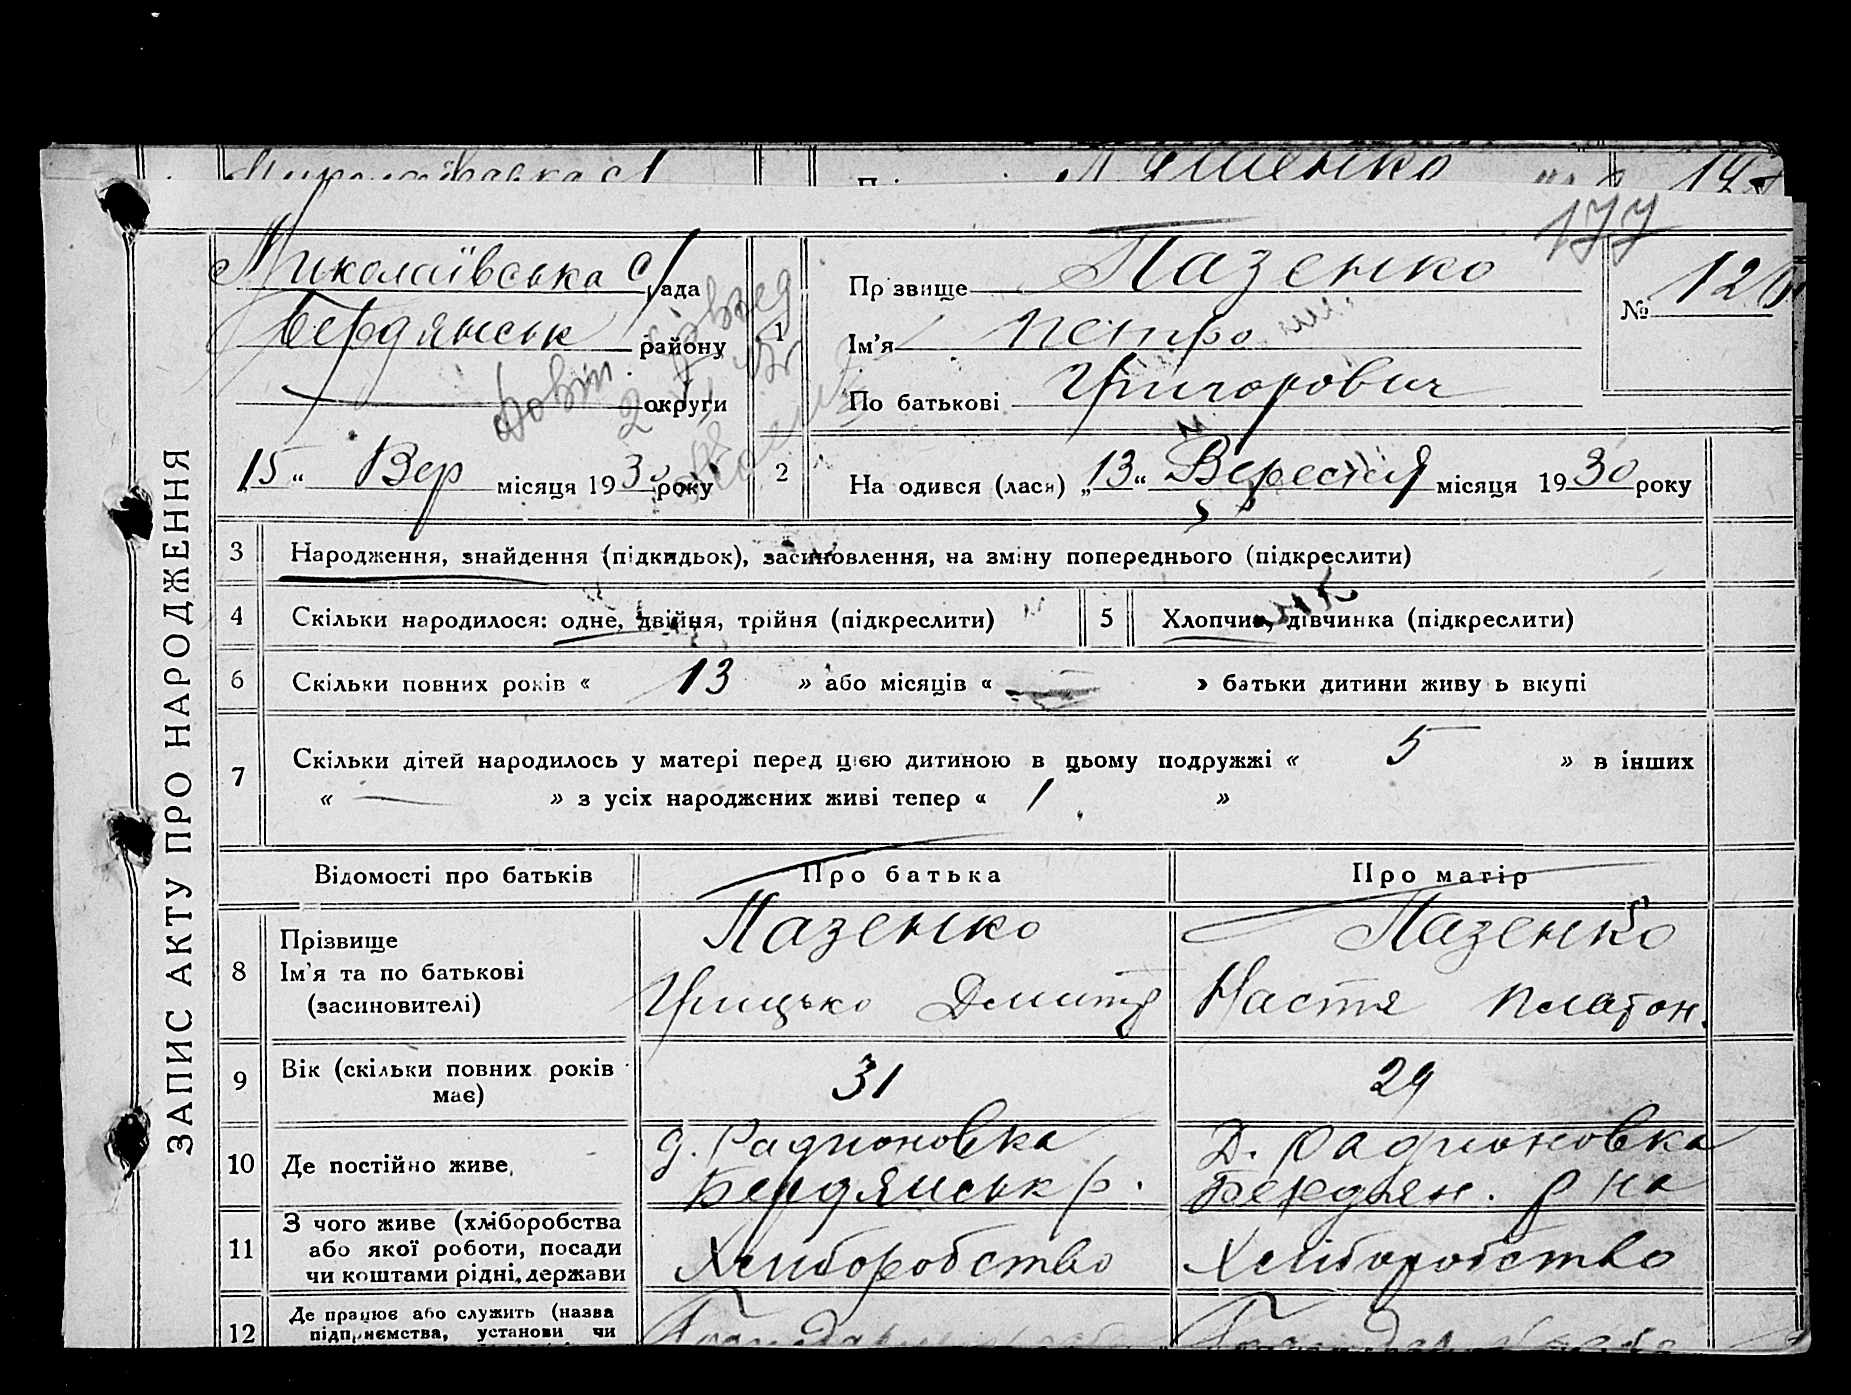 ЗАПИС АКТУ ПРО НАРОДЖЕННЯ
177
Миколаївська с/рада
Бердянськ району
округи
15 " Вер місяця 1930 року
1
Прізвище Пазенко
Ім'я Петро
По батькові Григорович
№ 120
2
На одився (лася) „13" Вересня місяця 1930 року
3 Народження, знайдення (підкидьок), засиновлення, на зміну попереднього (підкреслити)
4 Скільки народилося: одне, двійня, трійня (підкреслити)
5 Хлопчик, дівчинка (підкреслити)
6 Скільки повних років « 13 » або місяців « — » батьки дитини живу ь вкупі
7 Скільки дітей народилось у матері перед цією дитиною в цьому подружжі « 5 » в інших
« — » з усіх народжених живі тепер « 1 »
Відомості про батьків Про батька Про матір
8 Прізвище Пазенко Пазенко
Ім'я та по батькові Грицько Дмитр Настя Платон.
(засиновителі)
9 Вік (скільки повних років має) 31 29
10 Де постійно живе, д. Радионовка Д. Радионовка
Бердянськ р. Бердян. р на
11 З чого живе (хліборобства
або якої роботи, посади Хлиборобство Хліборобство
чи коштами рідні, держави
12 Де працює або служить (назва
підприємства, установи чи